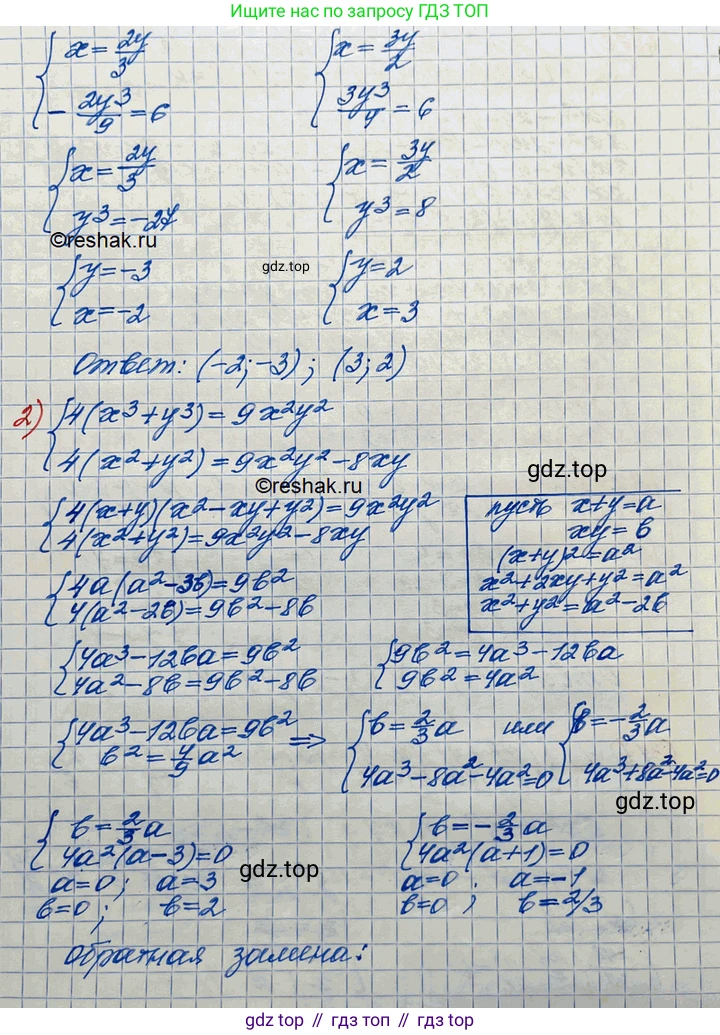 Ищите нас по запросу ГДЗ ТОП
{ x = 2y/3 { x = 3y/2
- 2y³/9 = 6 3y³/4 = 6
{ x = 2y/3 { x = 3y/2
y³ = -27 y³ = 8
©reshak.ru
gdz.top
{ y = -3 { y = 2
x = -2 x = 3
Ответ: (-2; -3); (3; 2)
2) { 4(x³+y³) = 9x²y²
4(x²+y²) = 9x²y² - 8xy
gdz.top
©reshak.ru
{ 4(x+y)(x²-xy+y²) = 9x²y²
4(x²+y²) = 9x²y² - 8xy
пусть x+y=a
xy = b
(x+y)² = a²
x²+2xy+y² = a²
x²+y² = a²-2b
{ 4a(a²-3b) = 9b²
4(a²-2b) = 9b²-8b
{ 4a³-12ba = 9b² { 9b² = 4a³-12ba
4a²-8b = 9b²-8b 9b² = 4a²
{ 4a³-12ba = 9b² ⇒ { b = 2/3 a или { b = -2/3 a
b² = 4/9 a² 4a³-8a²-4a²=0 4a³+8a²-4a²=0
gdz.top
{ b = 2/3 a { b = -2/3 a
4a²(a-3) = 0 4a²(a+1) = 0
gdz.top
a=0; a=3 a=0; a=-1
b=0; b=2 b=0; b=2/3
обратная замена:
gdz.top // гдз топ // gdz top